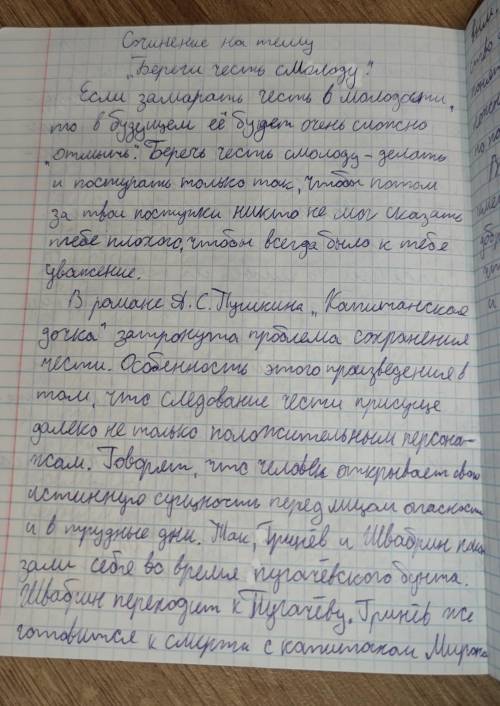 Сочинение на тему
„Береги честь смолоду".
Если замарать честь в молодости,
то в будущем её будет очень сложно
„отмыть". Беречь честь смолоду – делать
и поступать только так, чтобы потом
за твои поступки никто не мог сказать
тебе плохого, чтобы всегда было к тебе
уважение.
В романе А.С.Пушкина „Капитанская
дочка" затронута проблема сохранения
чести. Особенность этого произведения в
том, что следование чести присуще
далеко не только положительным персона-
жам. Говорят, что человек открывает свою
истинную сущность перед лицом опасности
и в трудные дни. Так, Гринёв и Швабрин пока
зали себя во время пугачёвского бунта.
Швабрин переходит к Пугачёву. Гринёв же
готовится к смерти с капитаном Мироно